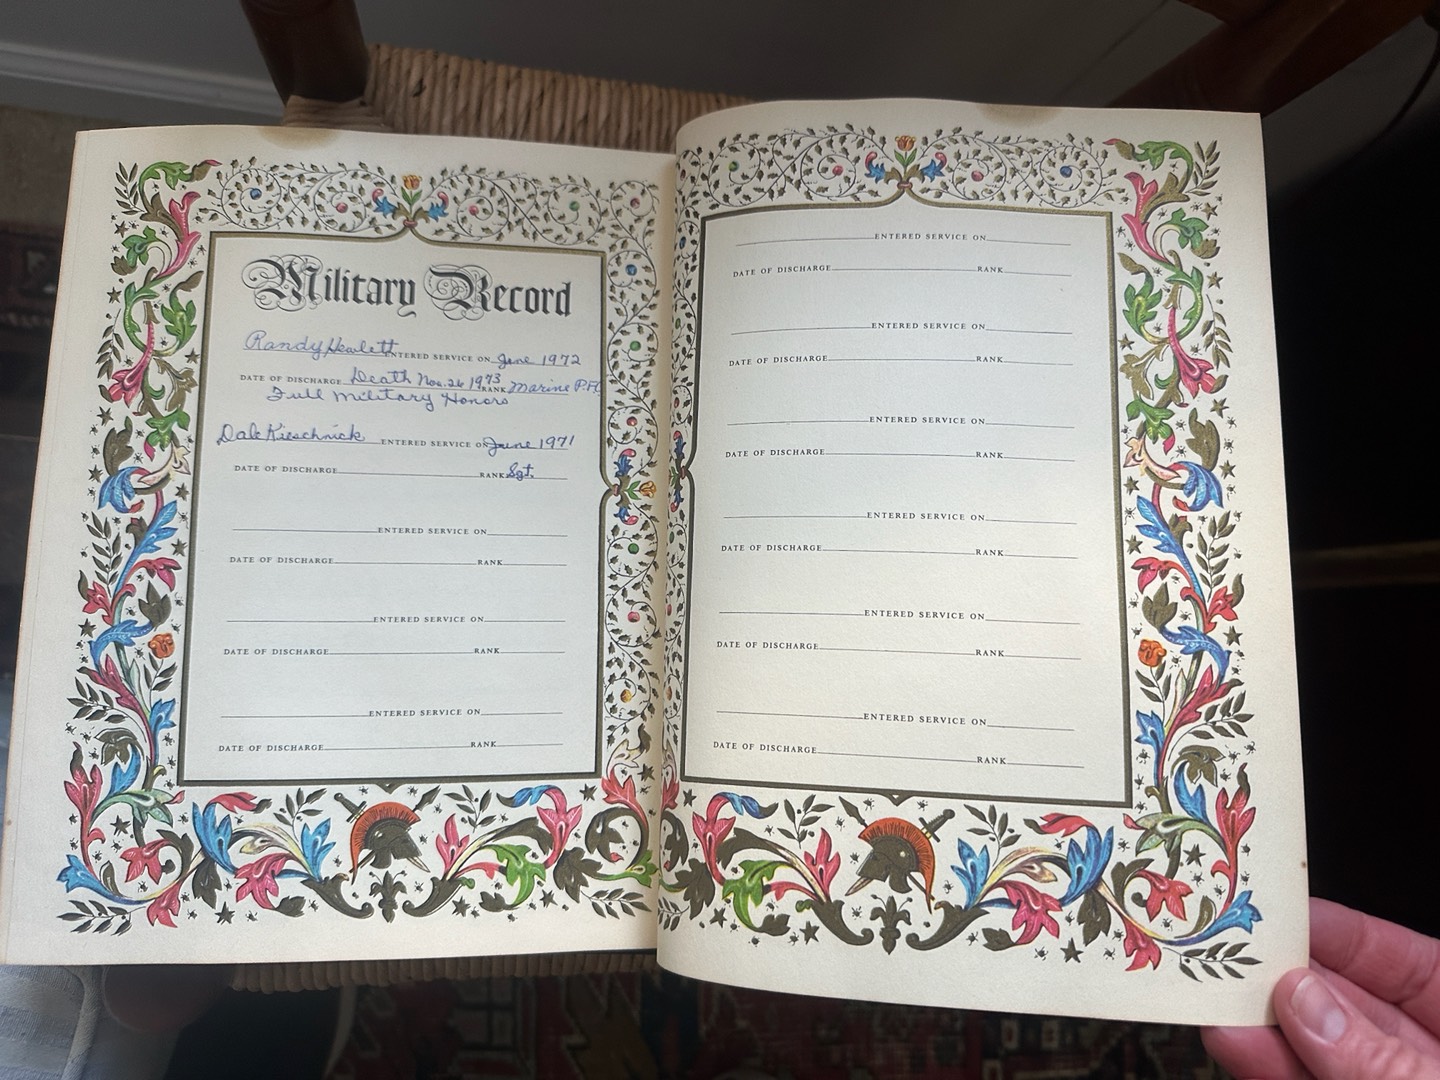 Military Record
Randy Hewlett ENTERED SERVICE ON June 1972
DATE OF DISCHARGE Death Nov. 26 1973 RANK Marine P.F.C
Full Military Honors
Dale Kieschnick ENTERED SERVICE ON June 1971
DATE OF DISCHARGE RANK Sgt.
ENTERED SERVICE ON
DATE OF DISCHARGE RANK
ENTERED SERVICE ON
DATE OF DISCHARGE RANK
ENTERED SERVICE ON
DATE OF DISCHARGE RANK
ENTERED SERVICE ON
DATE OF DISCHARGE RANK
ENTERED SERVICE ON
DATE OF DISCHARGE RANK
ENTERED SERVICE ON
DATE OF DISCHARGE RANK
ENTERED SERVICE ON
DATE OF DISCHARGE RANK
ENTERED SERVICE ON
DATE OF DISCHARGE RANK
ENTERED SERVICE ON
DATE OF DISCHARGE RANK